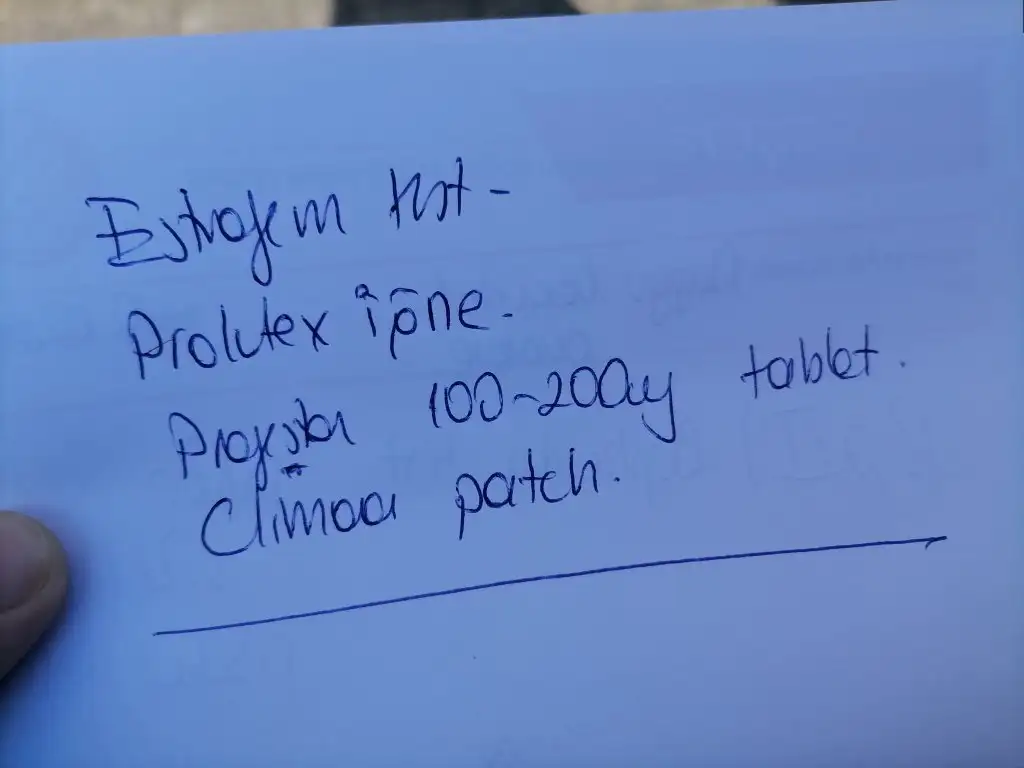 Estrofem tbt-
Prolutex iğne.
Progestan 100-200mg tablet.
Climara patch.